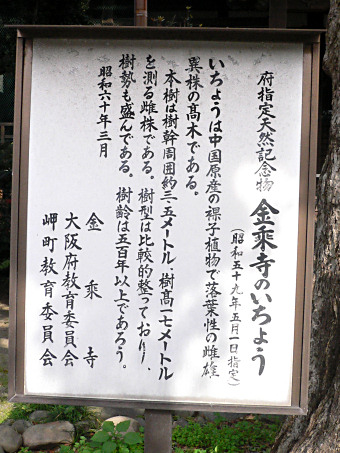 府指定天然記念物 金乗寺のいちょう
(昭和五十九年五月一日指定)
いちょうは中国原産の裸子植物で落葉性の雌雄
異株の高木である。
本樹は樹幹周囲約三・五メートル、樹高一七メートル
を測る雌株である。樹型は比較的整っており、
樹勢も盛んである。樹齢は五百年以上であろう。
昭和六十年三月
金乗寺
大阪府教育委員会
岬町教育委員会